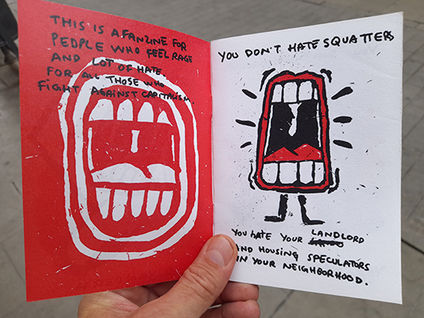 THIS IS A FANZINE FOR
PEOPLE WHO FEEL RAGE
AND LOT OF HATE
FOR ALL THOSE WHO
FIGHT AGAINST CAPITALISM
YOU DON'T HATE SQUATTERS
YOU HATE YOUR LANDLORD
AND HOUSING SPECULATORS
IN YOUR NEIGHBORHOOD.